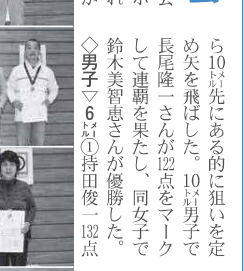 ら10㍍先にある的に狙いを定
め矢を飛ばした。10㍍男子で
長尾隆一さんが122点をマーク
して連覇を果たし、同女子で
鈴木美智恵さんが優勝した。
◇男子▽6㍍①持田俊一132点